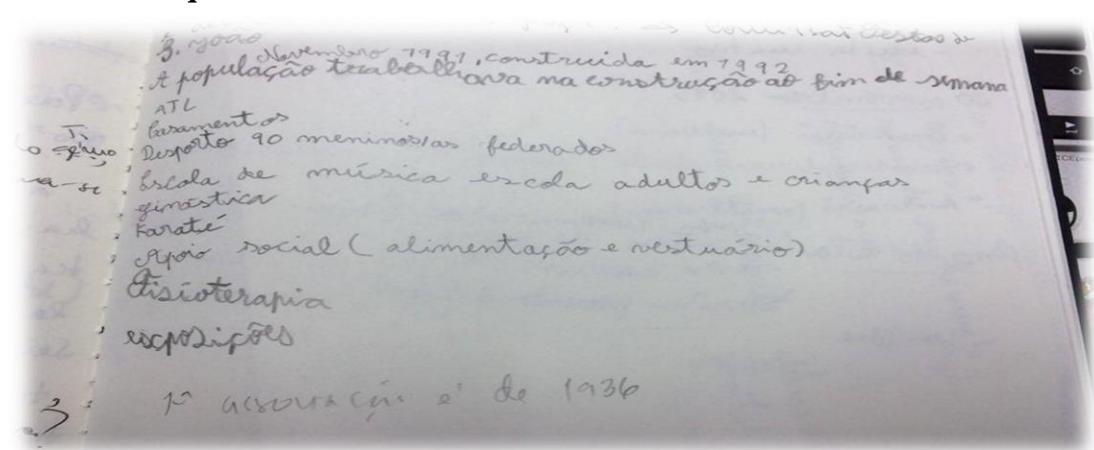 3. João
Novembro 1991, construida em 1992
A população trabalhava na construção ao fim de semana
ATL
Casamentos
Desporto 90 meninos/as federados
Escola de música escola adultos e crianças
ginástica
Karaté
Apoio social (alimentação e vestuário)
Fisioterapia
exposições
1ª associação é de 1936